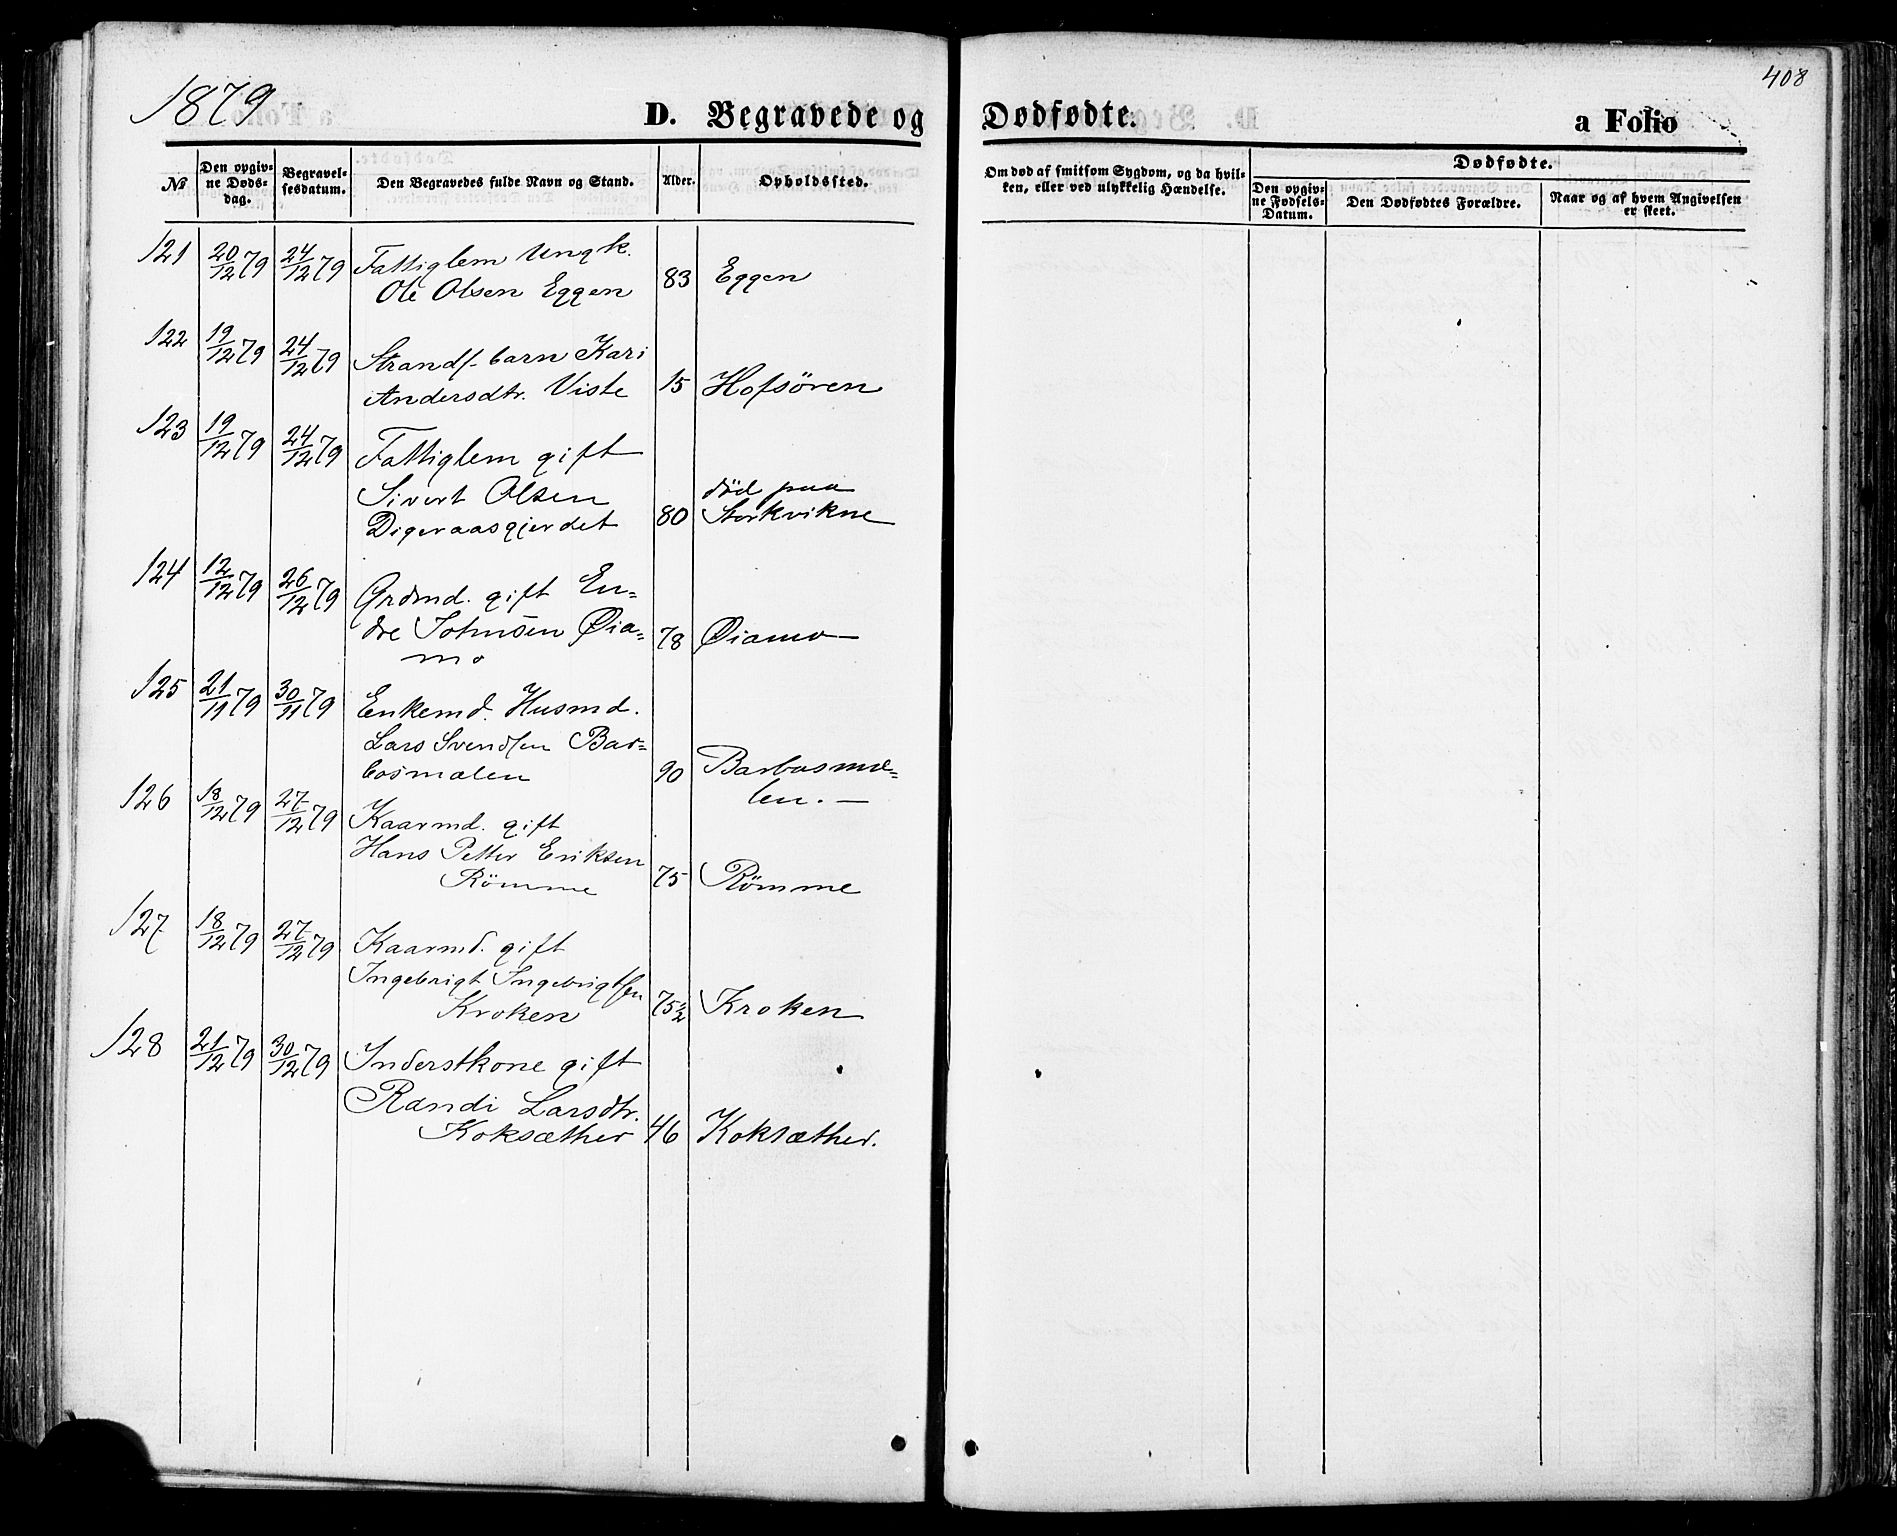 408
1879
D. Begravede og Dødfødte.
a Folio
№
Den opgiv-
ne Døds-
dag.
Begravel-
sesdatum.
Den Begravedes fulde Navn og Stand.
Alder.
Opholdssted.
Om død af smitsom Sygdom, og da hvil-
ken, eller ved ulykkelig Hændelse.
Dødfødte.
Den opgiv-
ne Fødsels-
Datum.
Den Dødfødtes Forældre.
Naar og af hvem Angivelsen
er skeet.
121 20/12 79 24/12 79 Fattiglem Ungk.
Ole Olsen Eggen 83 Eggen
122 19/12 79 24/12 79 Strands. barn Kari
Andersdtr. Viste 15 Hofsören
123 19/12 79 24/12 79 Fattiglem gift
Sivert Olsen død paa
Digeraasgjerdet 80 Storkvikne
124 12/12 79 26/12 79 Grdmd. gift En-
dre Johnsen Øia- 78 Øiamo
mo
125 21/11 79 30/11 79 Enkemd. Husmd.
Lars Svendsen Bar-
bosmælen 90 Barbosmæ-
len.
126 18/12 79 27/12 79 Kaarmd. gift
Hans Petter Eriksen
Römme 75 Römme
127 18/12 79 27/12 79 Kaarmd. gift
Ingebrigt Ingebrigtsen
Kroken 75½ Kroken
128 21/12 79 30/12 79 Inderstkone gift
Randi Larsdtr.
Koksæther 46 Koksæther.